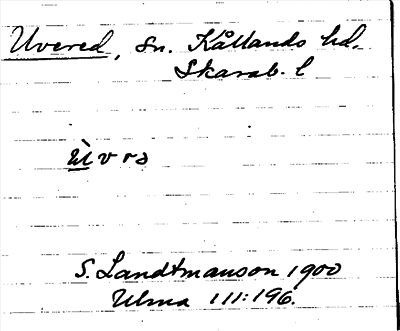 Uvered, sn. Kållands hd.
Skarab. l
ùvrə
S. Landtmanson 1900
Ulma 111:196.